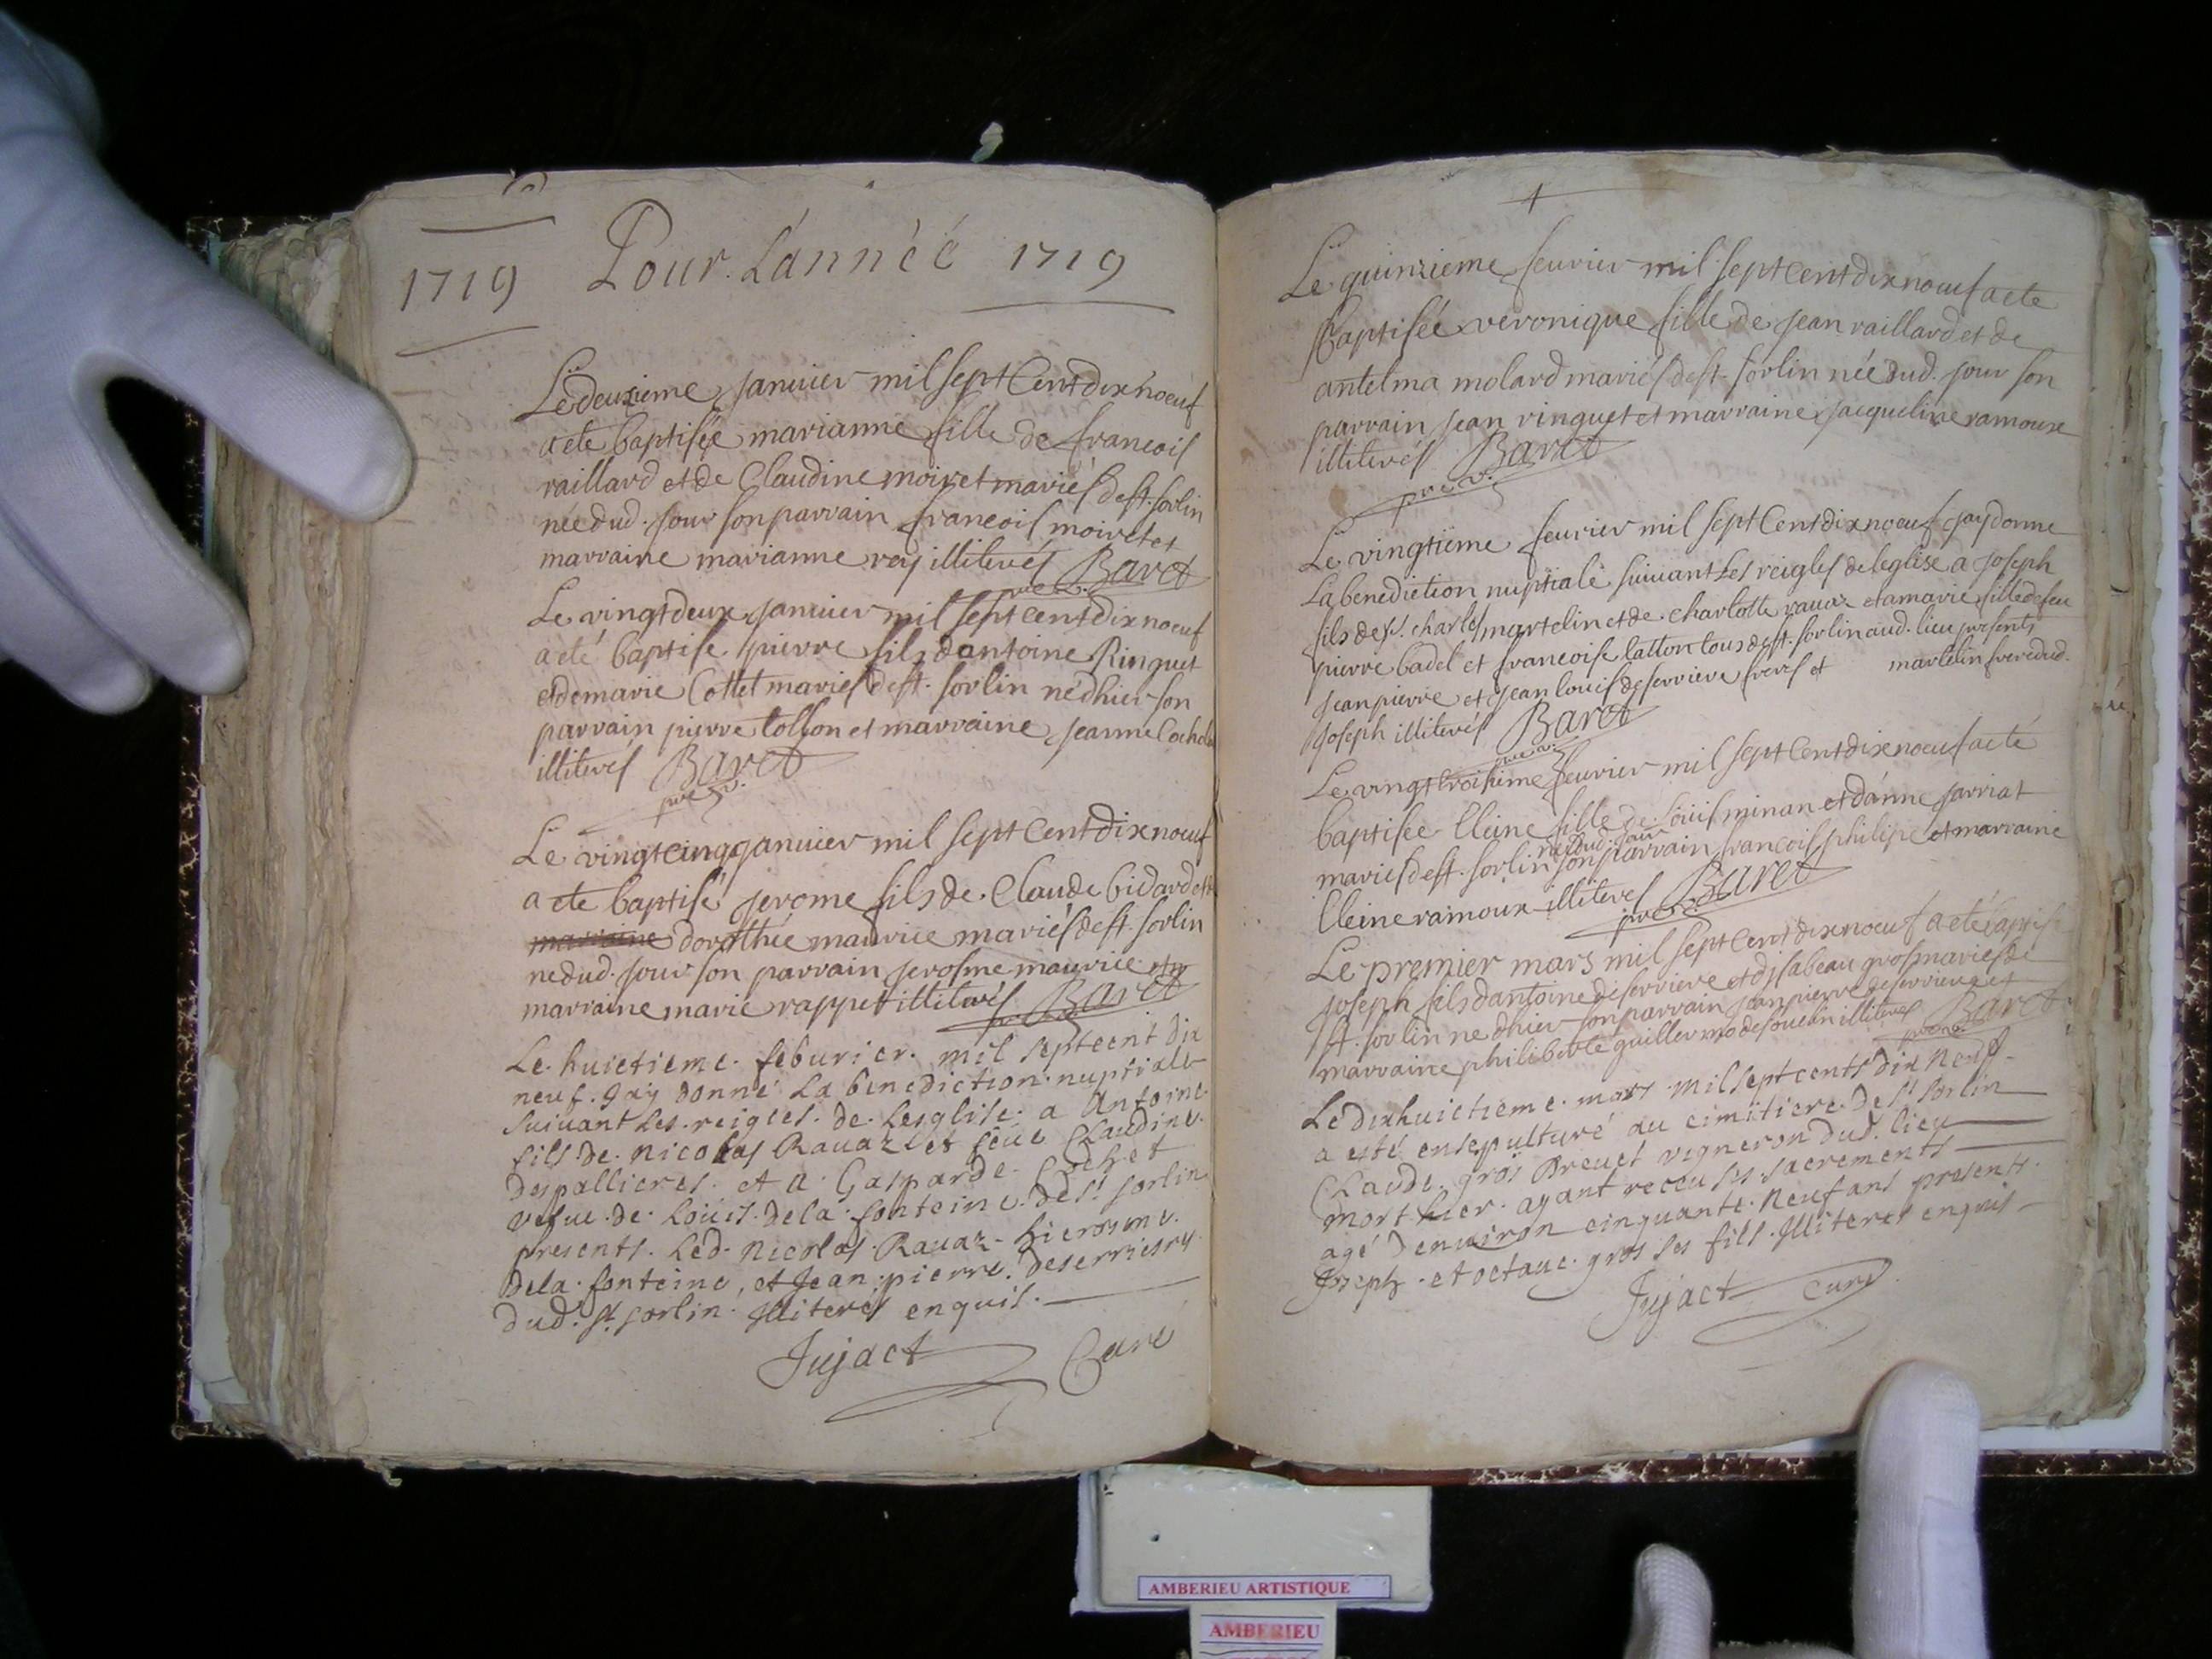 1719 Pour L'année 1719
Le deuxieme Januier mil sept Cent dix noeuf
a eté baptisée marianne fille de francois
raillard et de Claudine moiret mariés de st. sorlin
née dud. jour son parrain francois moiret et
marraine marianne rey illiterés Baret
Le vingt deux januier mil sept cent dix noeuf
a eté baptisé pierre fils dantoine Rinquet
et de marie Cottet mariés de st. sorlin né dhier son
parrain pierre tosson et marraine jeanne
illiterés Baret
Le vingt cinq januier mil sept Cent dix noeuf
a eté baptisé jerome fils de Claude bidard et
dorothée maurice mariés de st. sorlin
né dud. jour son parrain jerosme maurice
marraine marie rappet illiterés Baret
Le huictieme. feburier. mil sept cent dix
neuf. Jay donné La benediction nuptiale
suiuant les. reigles. de. Lesglise. a Antoine.
fils de. Nicolas Rauaz et feue Claudine.
despallieres. et a. Gasparde. Cochet
vefue. de. Louis. dela. fonteine. de st sorlin
presents. Led. Nicolas Rauaz. hierosme.
dela. fonteine, et Jean. pierre. deserriere
dud. st sorlin. Illiterés enquis.
Jujact Curé
Le quinzieme feurier mil sept Cent dix noeuf a eté
Baptisée veronique fille de jean raillard et de
antelma molard mariés de st. sorlin née dud. jour son
parrain jean rinquet et marraine jacqueline ramoux
illiterés Baret
Le vingtieme feurier mil sept Cent dix noeuf jay donné
La benediction nuptiale suiuant Les reigles de leglise a joseph
fils de sr. charles martelin et de charlotte rauaz et a marie fille de feu
pierre badel et francoise latton tous de st. sorlin aud. lieu presents
jean pierre et jean louis deserriere freres et martelin frere dud.
joseph illiterés Baret
Le vingt troisieme feurier mil sept Cent dix noeuf a eté
baptisée lleine fille de Louis minan et danne jarriat
née dud. jour
mariés de st. sorlin son parrain francois philipe et marraine
lleine ramoux illiterés Baret
Le premier mars mil sept Cent dix noeuf a eté baptisé
joseph fils dantoine deserriere et disabeau gros mariés de
st. sorlin né dhier son parrain jean pierre deserriere et
marraine philiberte guillermo de souclin illiterés Baret
Le dix huictieme. mars mil sept cents dix neuf
a esté ensepulturé au cimitiere. de st sorlin
Claude. gros Breuet vigneron dud. lieu
mort hier. ayant receu ses. sacrements
agé Denuiron cinquante. neuf ans presents.
Joseph. et octaue. gros ses fils. Illiteres enquis
Jujact curé
AMBERIEU ARTISTIQUE
AMBERIEU